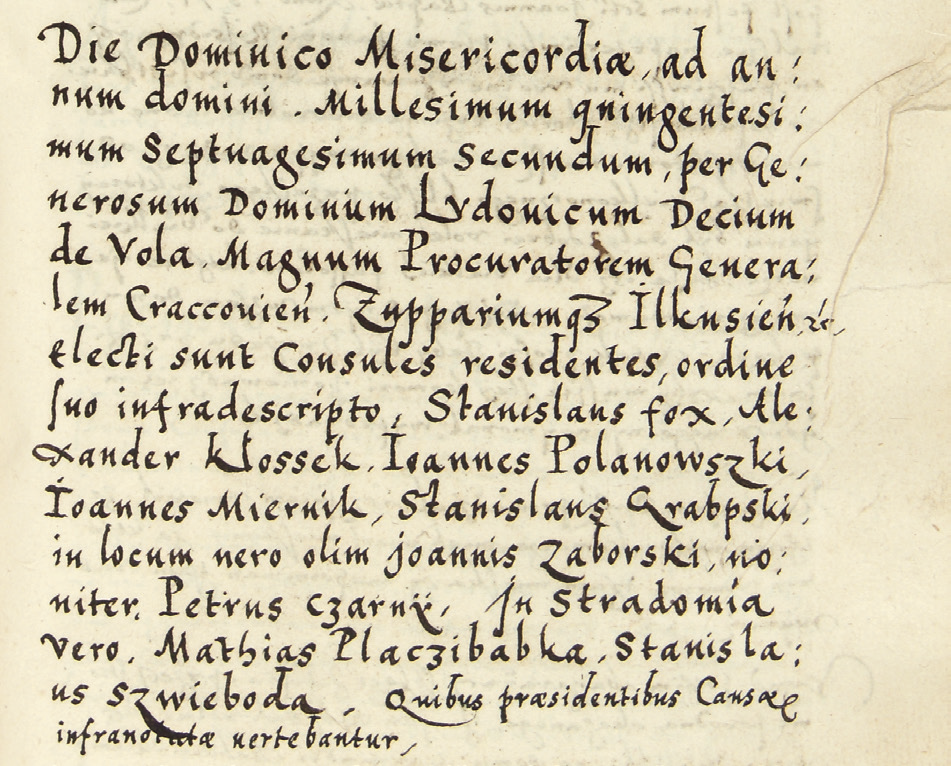 Die Dominico Misericordiæ, ad an:
num domini. Millesimum quingentesi:
mum Septuagesimum Secundum, per Ge:
nerosum Dominum Lvdouicum Decium
de Vola. Magnum Procuratorem Genera:
lem Craccouień. Zuppariumqꝫ Ilkusień. ꝛc,
Electi sunt Consules residentes, ordine
suo infradescripto, Stanislaus fox, Ale:
xander Klossek. Ioannes Polanowszki,
Ioannes Miernik, Stanislaus Grabpski,
in locum uero olim Joannis Zaborski, no:
uiter, Petrus Czarnÿ, In Stradomia
vero. Mathias Placzibabka, Stanisla:
us Szwieboda, Quibus præsidentibus Causæ
infranotatæ uertebantur,